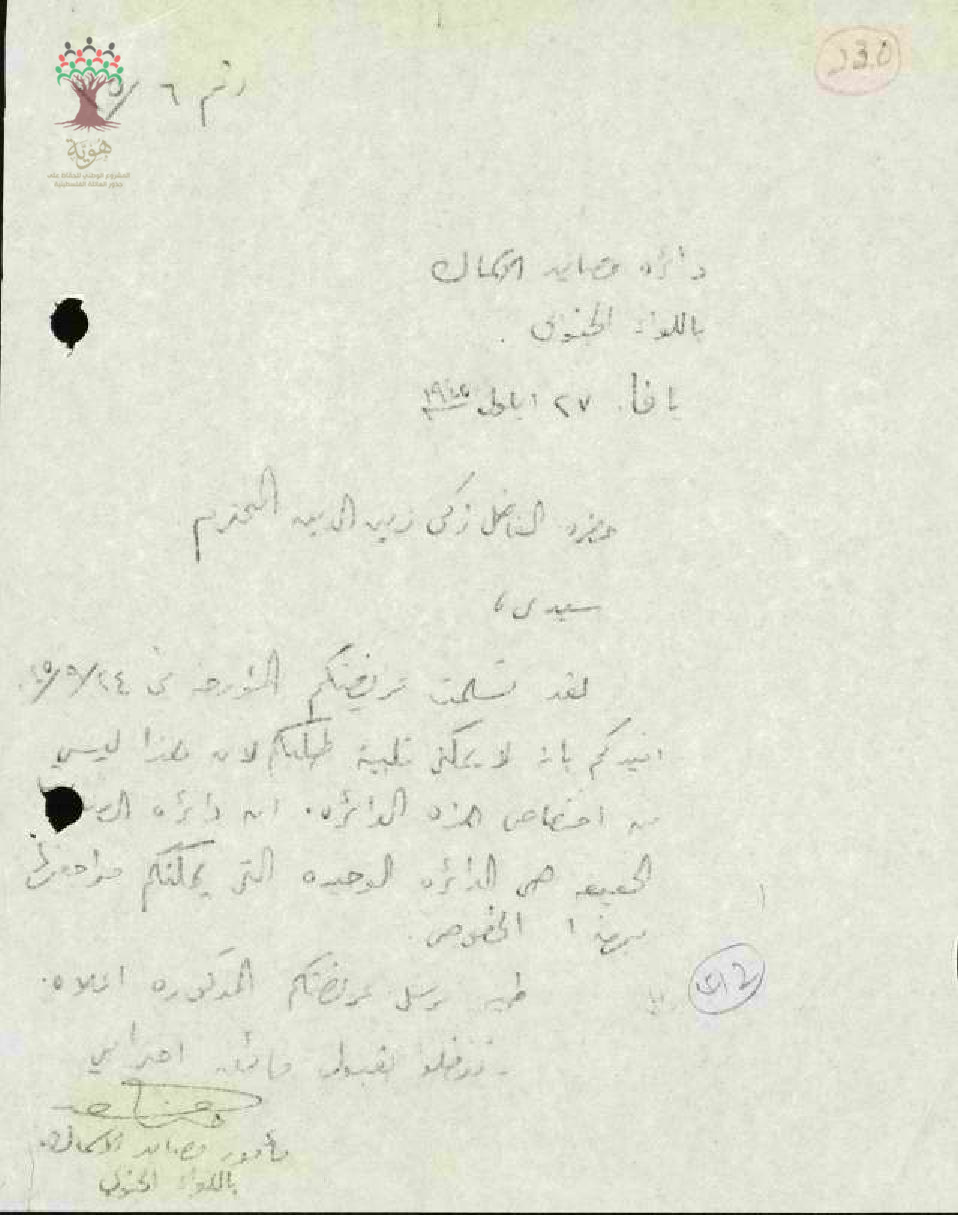 رقم ٦/٥
هوية
المشروع الوطني للحفاظ على
جذور العائلة الفلسطينية
دائره مصايد الاسماك
باللواء الجنوبي
يافا. ٢٧ ايلول ١٩٤٥
حضرة الفاضل زكي زين الدين المحترم
سيدي،
لقد تسلمت عريضتكم المؤرخه في ٢٤/٩/٤٥.
افيدكم بانه لا يمكني تلبية طلبكم لان هذا ليس
من اختصاص هذه الدائره. ان دائره
هي الدائره الوحيده التي يمكنكم مراجعتها
بهذا الخصوص.
طيه نرسل عريضتكم المذكوره اعلاه.
وتفضلوا بقبول فائق احترامي
مأمور مصايد الاسماك
باللواء الجنوبي